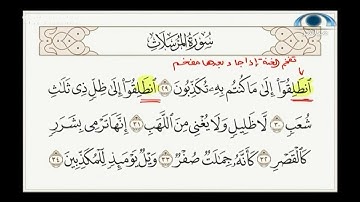 سورة المرسلات
تفخيم الغنة إذا جاء بعدها مفخم
ٱنطَلِقُوٓا۟ إِلَىٰ مَا كُنتُم بِهِۦ تُكَذِّبُونَ ٢٩ ٱنطَلِقُوٓا۟ إِلَىٰ ظِلٍّ ذِى ثَلَـٰثِ
شُعَبٍ ٣٠ لَّا ظَلِيلٍ وَلَا يُغْنِى مِنَ ٱللَّهَبِ ٣١ إِنَّهَا تَرْمِى بِشَرَرٍ
كَٱلْقَصْرِ ٣٢ كَأَنَّهُۥ جِمَـٰلَتٌ صُفْرٌ ٣٣ وَيْلٌ يَوْمَئِذٍ لِّلْمُكَذِّبِينَ ٣٤